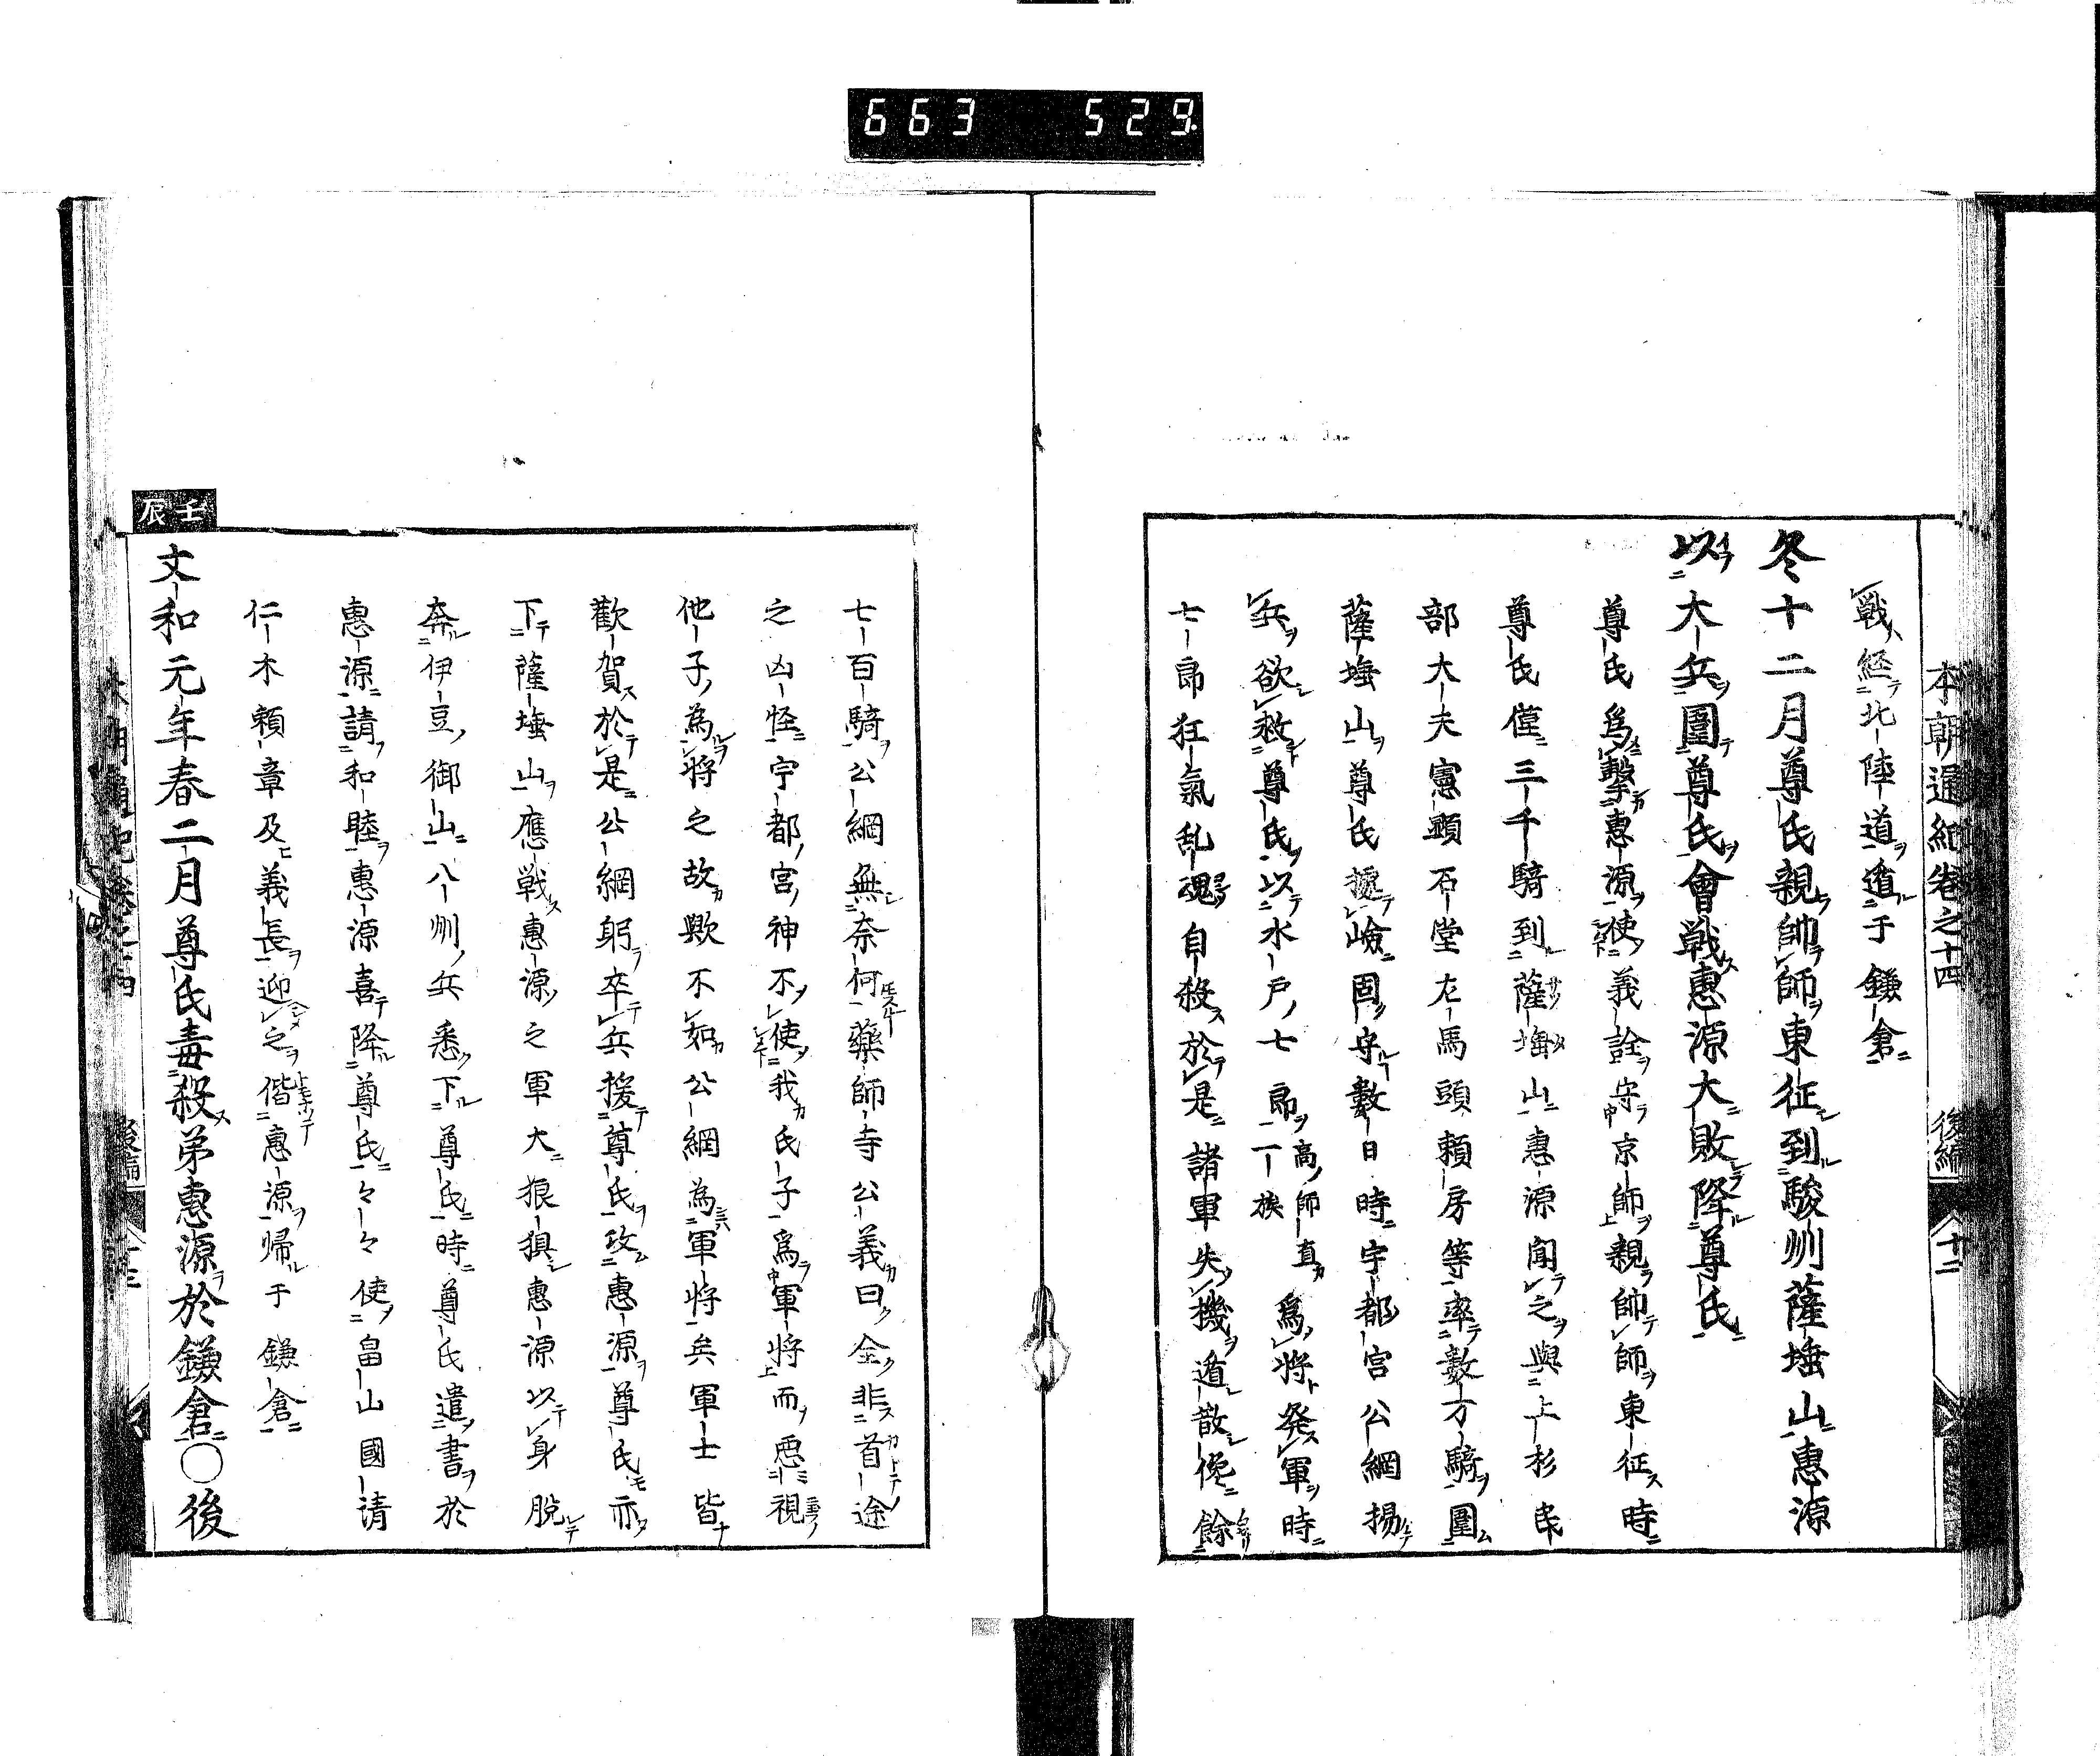 663 529
本朝通紀卷之十四 後編 十二
戰経北陸道遁于鎌倉
冬十二月尊氏親帥師東征到駿州薩埵山惠源
以大兵圍尊氏會戦惠源大敗降尊氏
尊氏為擊惠源使義詮守京師親帥師東征時
尊氏僅三千騎到薩埵山惠源聞之與上杉民
部大夫憲顕石堂左馬頭頼房等率數万騎圍
薩埵山尊氏據嶮固守數日時宇都宮公綱揚
兵欲救尊氏以水戸七郎高師直一族為将発軍時
七郎狂氣乱魂自殺於是諸軍失機遁散僅餘
七百騎公綱無奈何藥師寺公義曰全非首途
之凶怪宇都宮神不使我氏子為軍将而悪視
他子為将之故歟不如公綱為軍将矣軍士皆
歡賀於是公綱躬卒兵援尊氏攻惠源尊氏亦
下薩埵山應戦惠源之軍大狼狽惠源以身脱
奔伊豆御山八州兵悉下尊氏時尊氏遣書於
惠源請和睦惠源喜降尊氏々々使畠山國清
仁木頼章及義長迎之偕惠源帰于鎌倉
壬辰
文和元年春二月尊氏毒殺弟惠源於鎌倉○後